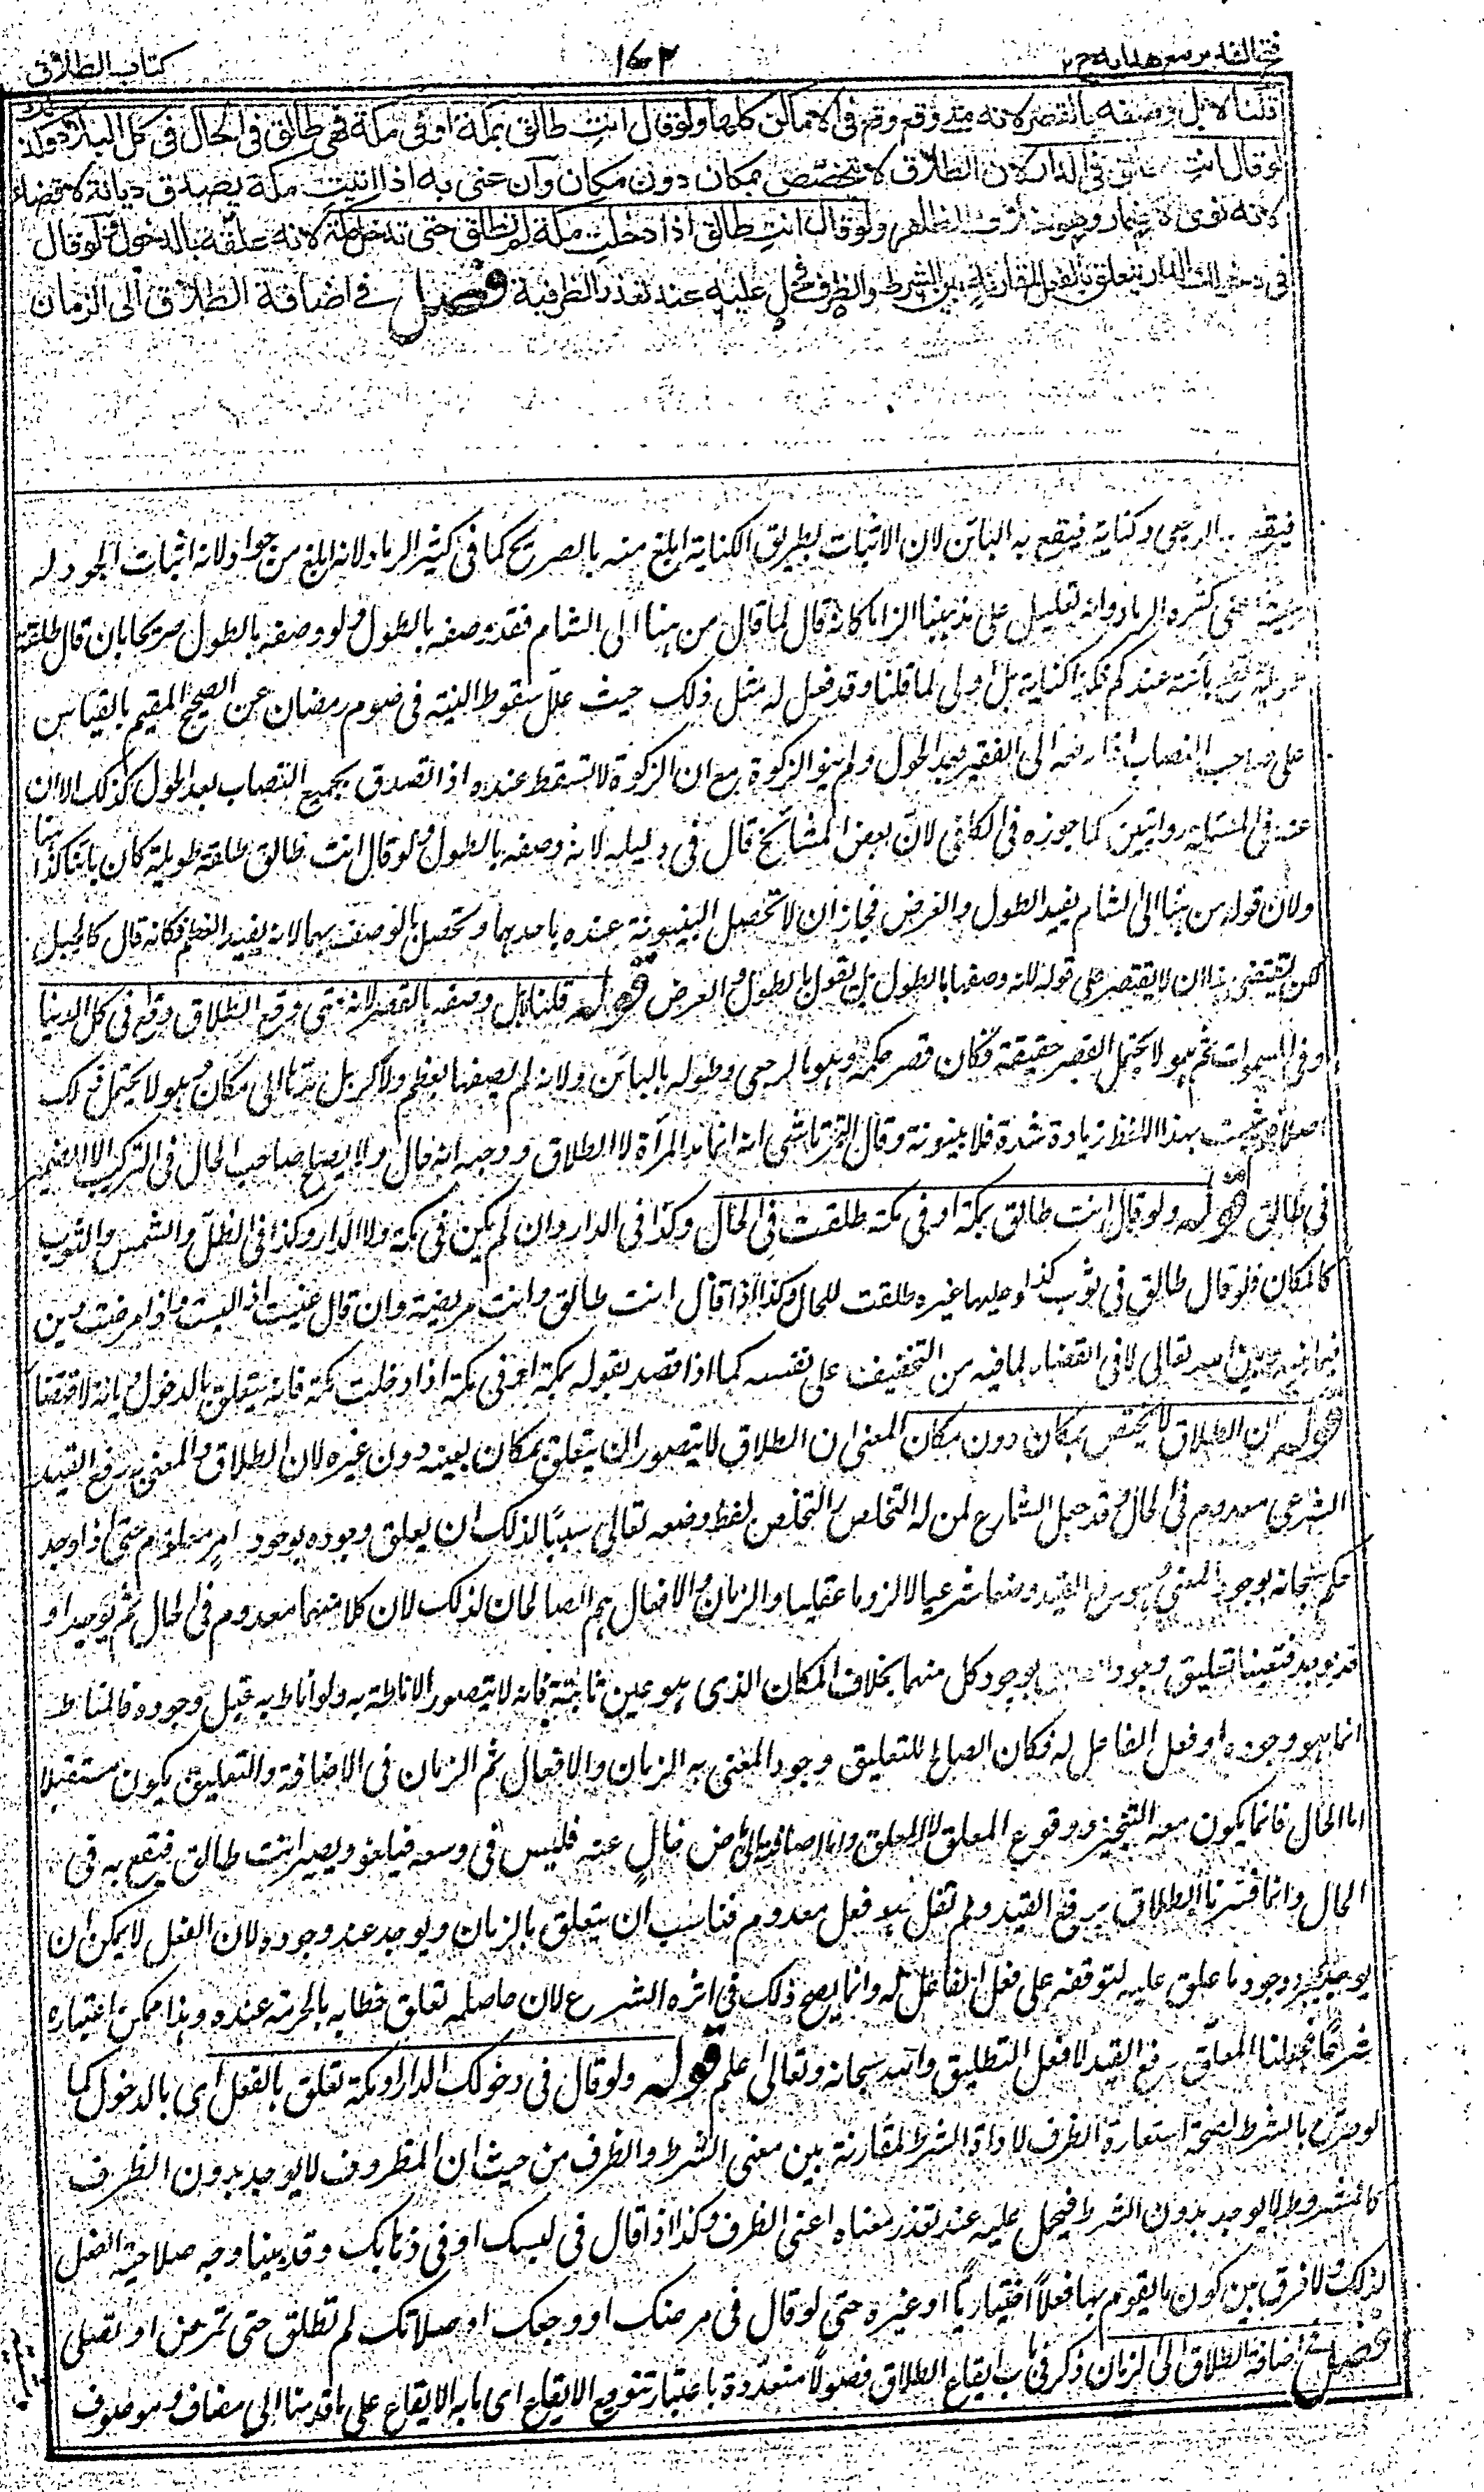 فتح القدير مع هدايه ج ٢
١٧٢
كتاب الطلاق
قلنا لا بل وصفه بالقصر لانه متى وقع وقع في الاماكن كلها ولو قال انت طالق بمكة او في مكة فهي طالق في الحال في كل البلاد وكذلك
لو قال انت طالق في الدار لان الطلاق لا يتخصص بمكان دون مكان وان عنى به اذا اتيت مكة يصدق ديانة لا قضاء
لانه نوى الاضمار وهو خلاف الظاهر ولو قال انت طالق اذا دخلت مكة لم تطلق حتى تدخل مكة لانه علقه بالدخول ولو قال
في دخولك الدار يتعلق بالفعل لمقارنة بين الشرط والظرف فحمل عليه عند تعذر الظرفية فصل في اضافة الطلاق الى الزمان
فيقع به الرجعي وكناية فيقع به البائن لان الاثبات بطريق الكناية ابلغ منه بالصريح كما في كثير الرماد لانه ابلغ من جواد لانه اثبات الجود له
ببينة اعني كثرة الرماد وانه تعليل على مذهبنا الزاما كانه قال لما قال من هنا الى الشام فقد وصفه بالطول ولو وصفه بالطول صريحا بان قال طلقة
طويلة تقع بائنة عندكم فكذا كناية بل اولى لما قلنا وقد فعل له مثل ذلك حيث علل سقوط النية في صوم رمضان عن الصحيح المقيم بالقياس
على صاحب النصاب اذا دفعه الى الفقير بعد الحول ولم ينو الزكوة مع ان الزكوة لا تسقط عنده اذ التصدق بجميع النصاب بعد الحول كذلك الا ان
عنه في المسئلة روايتين كما جوزه في الكافي لان بعض المشائخ قال في دليله لانه وصفه بالطول ولو قال انت طالق طلقة طويلة كان بائنا كذا هنا
ولان قوله من هنا الى الشام يفيد الطول والعرض فجاز ان لا تحصل البينونة عنده باحدهما وتحصل بالوصف بهما لانه يفيد العظم فكانه قال كالجبل
لكن يقتضي هذا ان لا يقتصر على قوله لانه وصفها بالطول بل يقول بالطول والعرض قوله قلنا لا بل وصفه بالقصر لانه متى وقع الطلاق وقع في كل الدنيا
وفي السموات ثم هو لا يحتمل القصر حقيقة فكان قصر حكمه وهو بالرجعي وطوله بالبائن ولانه لم يصفها بعظم ولا كبر بل مدها الى مكان وهو لا يحتمل ذلك
اصلا فلم يثبت بهذا اللفظ زيادة شدة فلا بينونة وقال التمرتاشي انه انما مد المرأة لا الطلاق ووجهه انه حال ولا يصلح صاحب الحال في التركيب الا الضمير
في طالق قوله ولو قال انت طالق بمكة او في مكة طلقت في الحال وكذا في الدار وان لم يكن في مكة ولا الدار وكذا في الظل والشمس والثوب
كالمكان فلو قال طالق في ثوب كذا وعليها غيره طلقت للحال وكذا اذا قال انت طالق وانت مريضة وان قال عنيت اذا لبست واذا مرضت دين
فيما بينه وبين الله تعالى لا في القضاء لما فيه من التخفيف على نفسه كما اذا قصد بقوله بمكة او في مكة اذا دخلت مكة فانه يتعلق بالدخول ديانة لا قضاء
قوله لان الطلاق لا يختص بمكان دون مكان المعنى ان الطلاق لا يتصور ان يتعلق بمكان بعينه دون غيره لان الطلاق والمعنى به رفع القيد
الشرعي معدوم في الحال وقد جعل الشارع لمن له التخلص بالتخلص لفظ وضعه تعالى سببا لذلك ان يعلق وجوده بوجود امر معلوم حتى اذا وجد
حكم سبحانه بوجود المعنى وهو رفع القيد وضعا شرعيا لا لزوما عقليا والزمان والافعال هما الصالحان لذلك لان كلا منهما معدوم في الحال ثم يوجد او
قد يوجد فتعينا تعليق وجود بوجود كل منهما بخلاف المكان الذي هو عين ثابتة فانه لا يتصور الاناطة به ولو اناط به قبل وجوده فالمناط
انما هو وجوده او فعل الفاعل له فكان الصالح للتعليق وجود المعنى به الزمان والافعال ثم الزمان في الاضافة والتعليق يكون مستقبلا
اما الحال فانما يكون معه التنجيز ووقوع المعلق لا المعلق واما اضافته الى ماض خال عنه فليس في وسعه فيلغو ويصير انت طالق فيقع به في
الحال وانما فسرنا الطلاق برفع القيد ولم نقل هو فعل معدوم فناسب ان يتعلق بالزمان ويوجد عند وجوده لان الفعل لا يمكن ان
يوجد بمجرد وجود ما علق عليه لتوقفه على فعل الفاعل له وانما يصح ذلك في اثره الشرع لان حاصله تعلق خطابه بالحرمة عنده وهذا ممكن اعتباره
شرعا فجعلنا المعلق رفع القيد لا فعل التطليق والله سبحانه وتعالى اعلم قوله ولو قال في دخولك الدار او مكة تعلق بالفعل اي بالدخول كما
لو صرح بالشرط لصحة استعارة الظرف لاداة الشرط لمقارنة بين معنى الشرط والظرف من حيث ان المظروف لا يوجد بدون الظرف
كالمشروط لا يوجد بدون الشرط فيحمل عليه عند تعذر معناه اعني الظرف وكذا اذا قال في لبسك او في ذهابك وقد بينا وجه صلاحية الفعل
لذلك ولا فرق بين كون ما يقوم بها فعلا اختياريا او غيره حتى لو قال في مرضك او وجعك او صلاتك لم تطلق حتى تمرض او تصلي
فصل في اضافة الطلاق الى الزمان ذكر في باب ايقاع الطلاق فصولا متعددة باعتبار تنوع الايقاع اي ما به الايقاع على ما قدمنا الى مضاف وموصوف